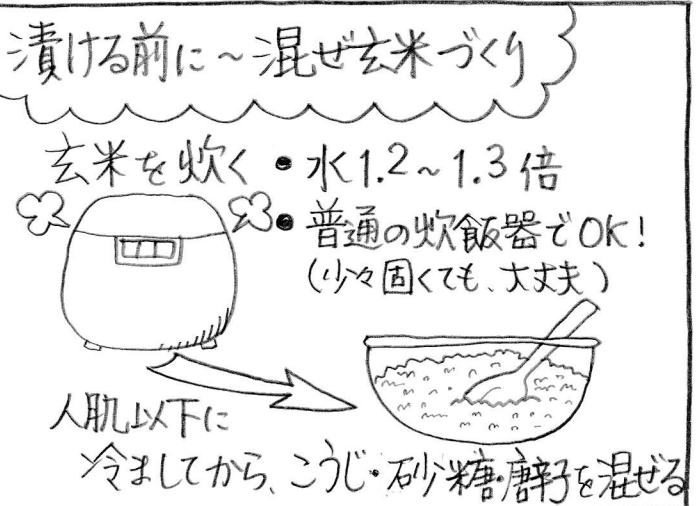 漬ける前に～混ぜ玄米づくり
玄米を炊く
・水1.2～1.3倍
・普通の炊飯器でOK!
(少々固くても、大丈夫)
人肌以下に
冷ましてから、こうじ・砂糖・唐辛子を混ぜる